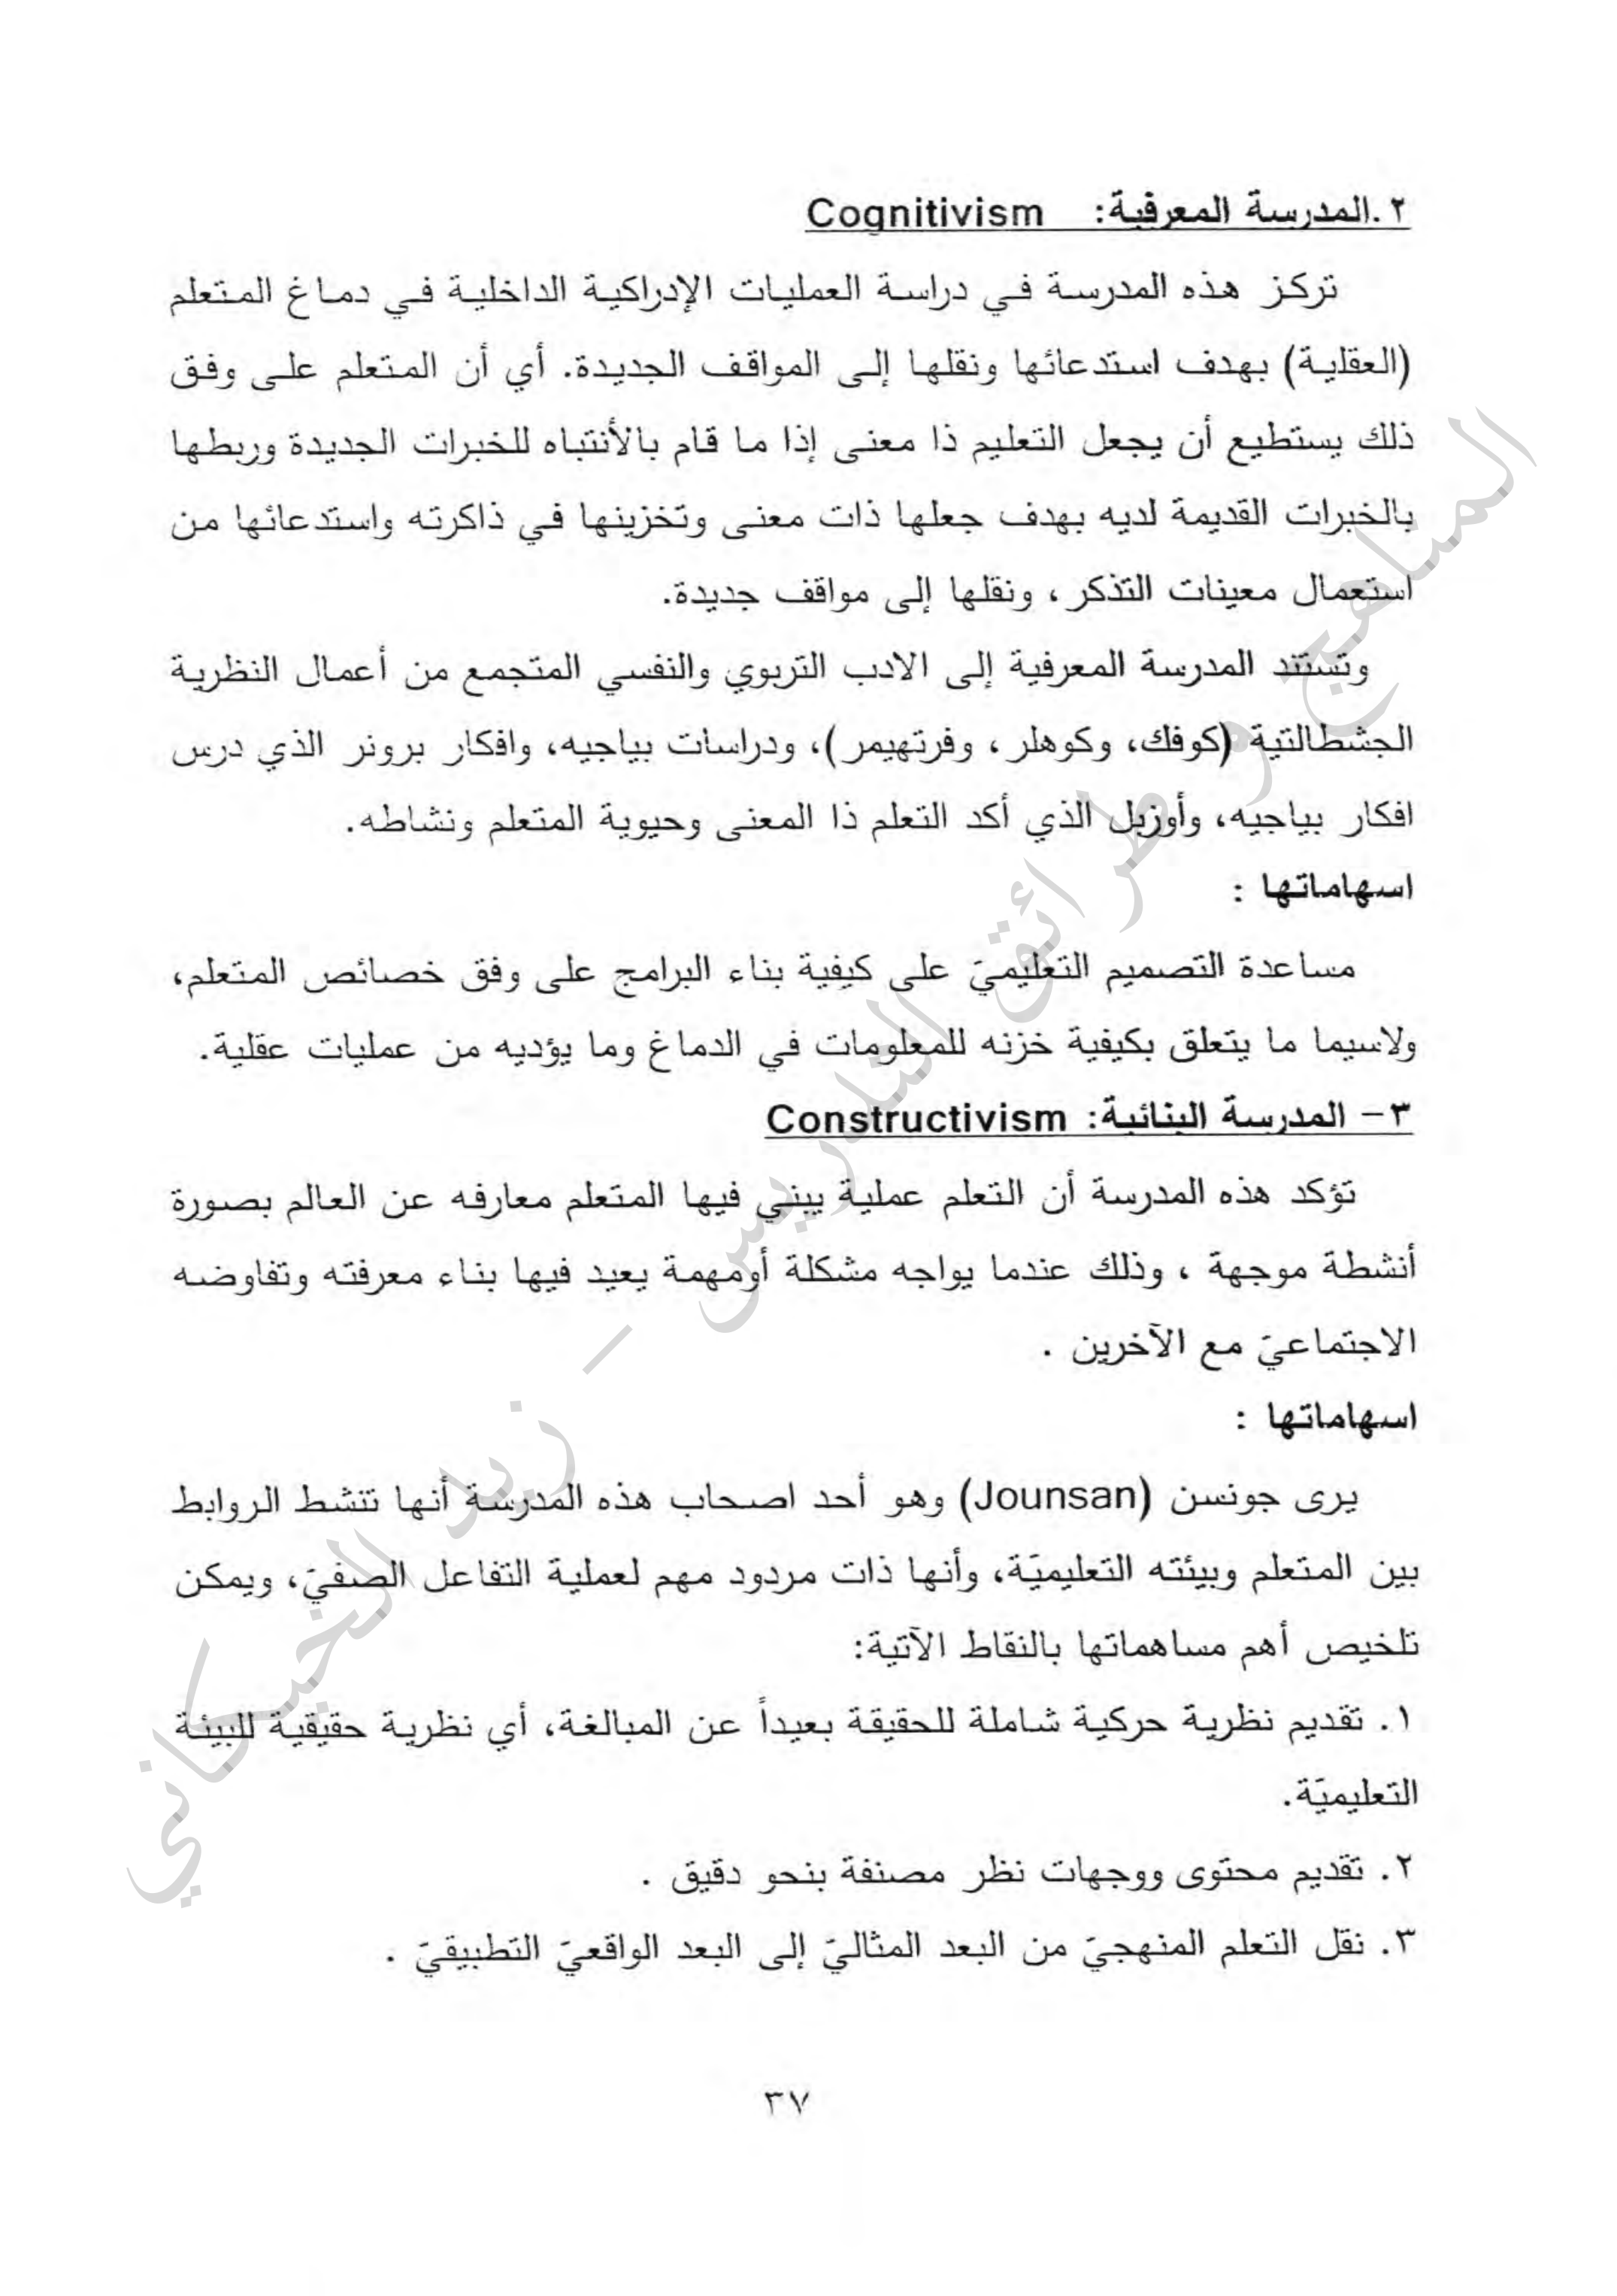 ٢.المدرسة المعرفية: Cognitivism
تركز هذه المدرسة في دراسة العمليات الإدراكية الداخلية في دماغ المتعلم
(العقلية) بهدف استدعائها ونقلها إلى المواقف الجديدة. أي أن المتعلم على وفق
ذلك يستطيع أن يجعل التعليم ذا معنى إذا ما قام بالأنتباه للخبرات الجديدة وربطها
بالخبرات القديمة لديه بهدف جعلها ذات معنى وتخزينها في ذاكرته واستدعائها من
استعمال معينات التذكر، ونقلها إلى مواقف جديدة.
وتستند المدرسة المعرفية إلى الادب التربوي والنفسي المتجمع من أعمال النظرية
الجشطالتية (كوفك، وكوهلر، وفرتهيمر)، ودراسات بياجيه، وافكار برونر الذي درس
افكار بياجيه، وأوزبل الذي أكد التعلم ذا المعنى وحيوية المتعلم ونشاطه.
اسهاماتها :
مساعدة التصميم التعليميَ على كيفية بناء البرامج على وفق خصائص المتعلم،
ولاسيما ما يتعلق بكيفية خزنه للمعلومات في الدماغ وما يؤديه من عمليات عقلية.
٣- المدرسة البنائية: Constructivism
تؤكد هذه المدرسة أن التعلم عملية يبني فيها المتعلم معارفه عن العالم بصورة
أنشطة موجهة ، وذلك عندما يواجه مشكلة أومهمة يعيد فيها بناء معرفته وتفاوضه
الاجتماعيَ مع الآخرين .
اسهاماتها :
يرى جونسن (Jounsan) وهو أحد اصحاب هذه المدرسة أنها تنشط الروابط
بين المتعلم وبيئته التعليميَة، وأنها ذات مردود مهم لعملية التفاعل الصفيَ، ويمكن
تلخيص أهم مساهماتها بالنقاط الآتية:
١. تقديم نظرية حركية شاملة للحقيقة بعيداً عن المبالغة، أي نظرية حقيقية للبيئة
التعليميَة.
٢. تقديم محتوى ووجهات نظر مصنفة بنحو دقيق .
٣. نقل التعلم المنهجيَ من البعد المثاليَ إلى البعد الواقعيَ التطبيقيَ .
٣٧
المناهج و طرائق التدريس – زيد الخيكاني